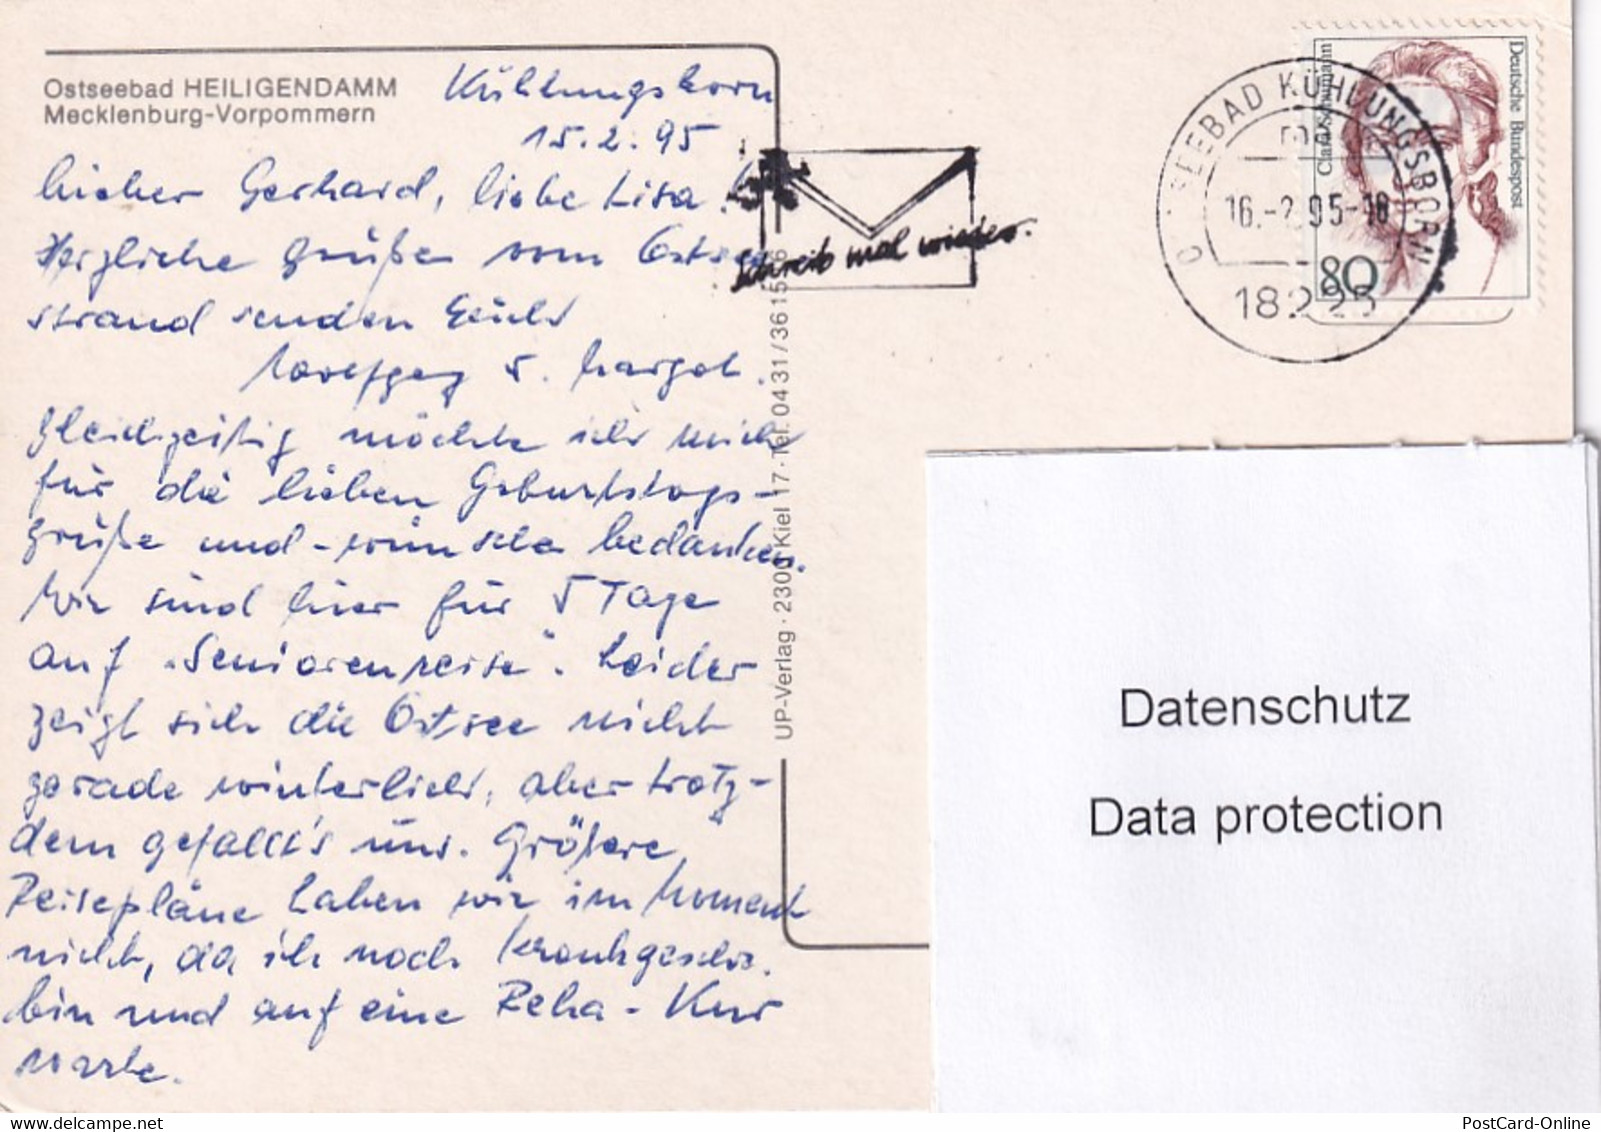 Ostseebad HEILIGENDAMM
Mecklenburg-Vorpommern
Kühlungsborn
15.2.95
Lieber Gerhard, liebe Lisa!
Herzliche Grüße vom Ostsee-
strand senden Euch
Wolfgang u. Margot.
Gleichzeitig möchte ich mich
für die lieben Geburtstags-
grüße und -wünsche bedanken.
Wir sind hier für 5 Tage
auf „Seniorenreise". Leider
zeigt sich die Ostsee nicht
gerade winterlich, aber trotz-
dem gefällt's uns. Größere
Reisepläne haben wir im Moment
nicht, da ich noch krankgeschr.
bin und auf eine Reha-Kur
warte.
UP-Verlag · 2300 Kiel 17 · Tel. 04 31 / 36 15
Schreib mal wieder.
OSTSEEBAD KÜHLUNGSBORN
16.-2.95-18
18225
Clara Schumann
Deutsche Bundespost
80
Datenschutz
Data protection
PostCard-Online